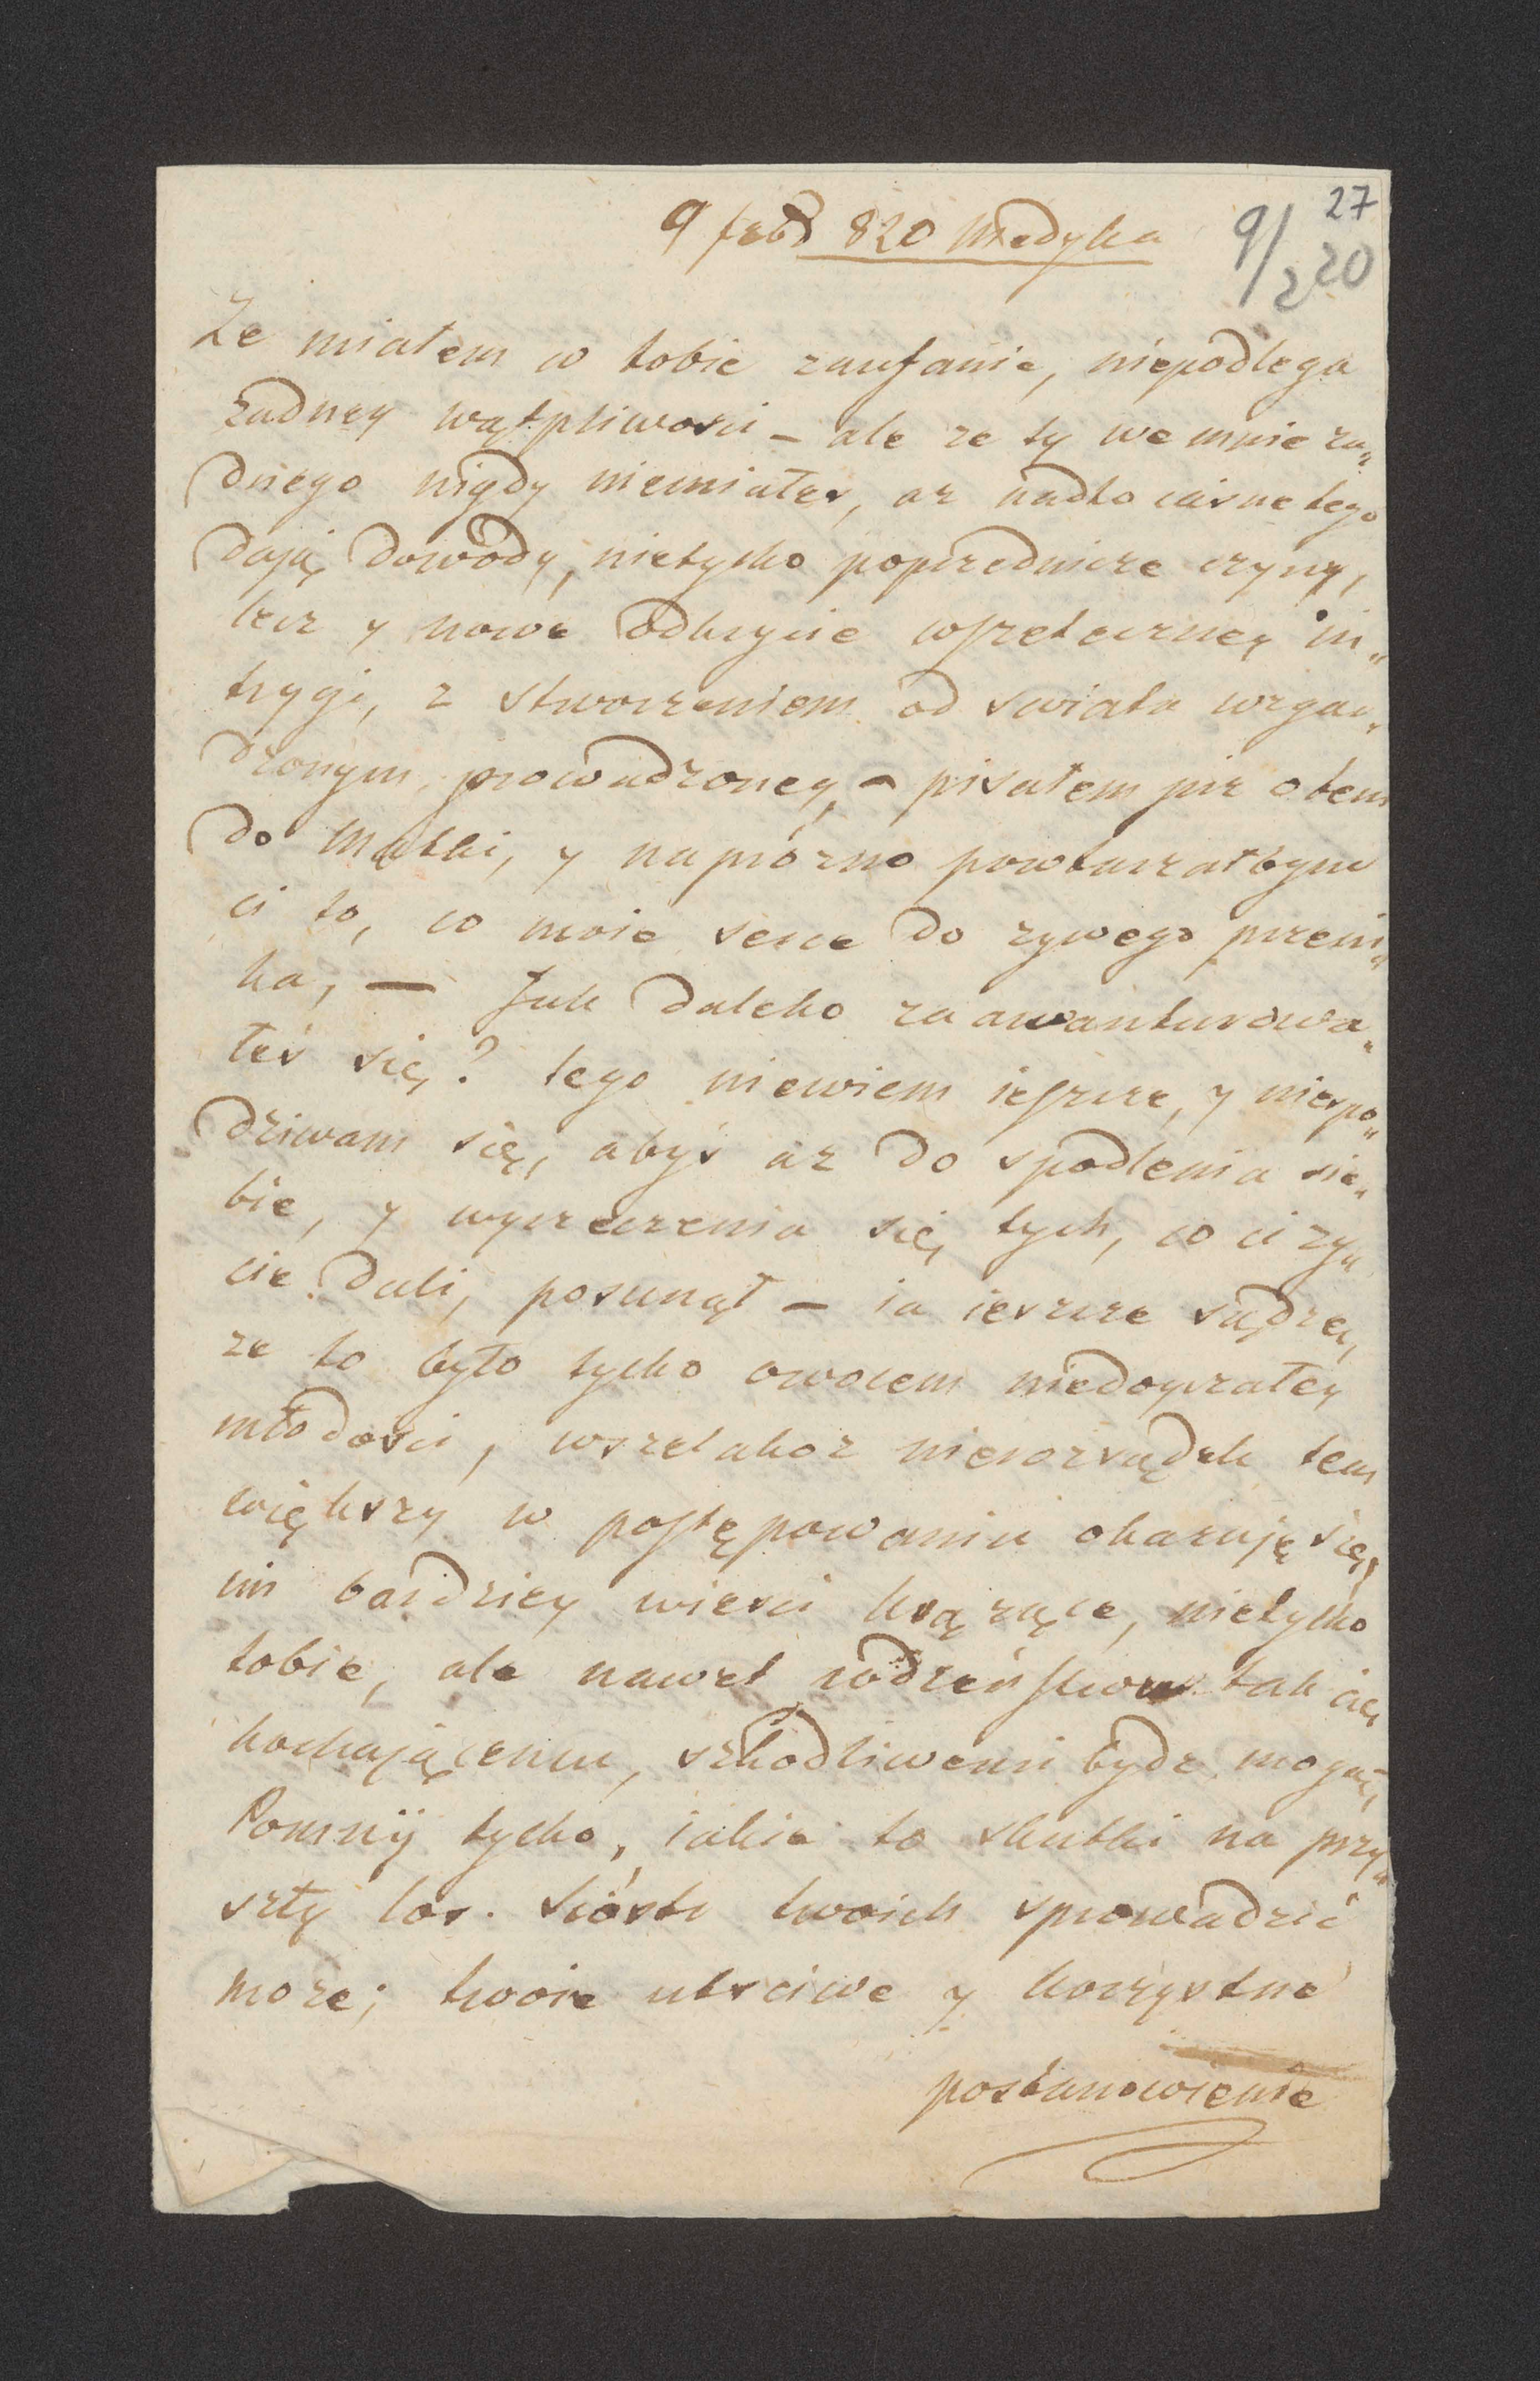 27
9 febr 820 Medyka
9/2 20
Ze miałem w tobie zaufanie, niepodlega
żadney wątpliwosci – ale ze ty we mnie ża„
dnego nigdy niemiałes, az nadto iasne tego
dają dowody, nietylko poprzednicze czyny,
lecz y nowe odkrycie wszeteczney in„
trygi, z stworzeniem od swiata wzgar„
dzonym, prowadzoney, – pisałem juz o tem
do Matki, y naprózno powtarzałbym
ci to, co moie serce do zywego przeni„
ka, — Jak daleko zaawanturowa„
łeś się? tego niewiem ieszcze, y niespo„
dziwam się, abyś az do spodlenia sie„
bie, y wyrzeczenia się tych, co ci zy„
cie dali, posunął – ia ieszcze sądzę,
ze to było tylko owocem niedoyrzałey
młodosci, wszelakoz nierozsądek tem
większy w postępowaniu okazuję się,
im bardziey wiesci krążące, nietylko
tobie, ale nawet rodzeństwu tak cię
kochającemu, szkodliwemi bydz mogą,
Pomnij tylko, iakie to skutki na przy„
szły los. sióstr twoich sprowadzić
moze; twoie utsciwe y korzystne
postanowienie